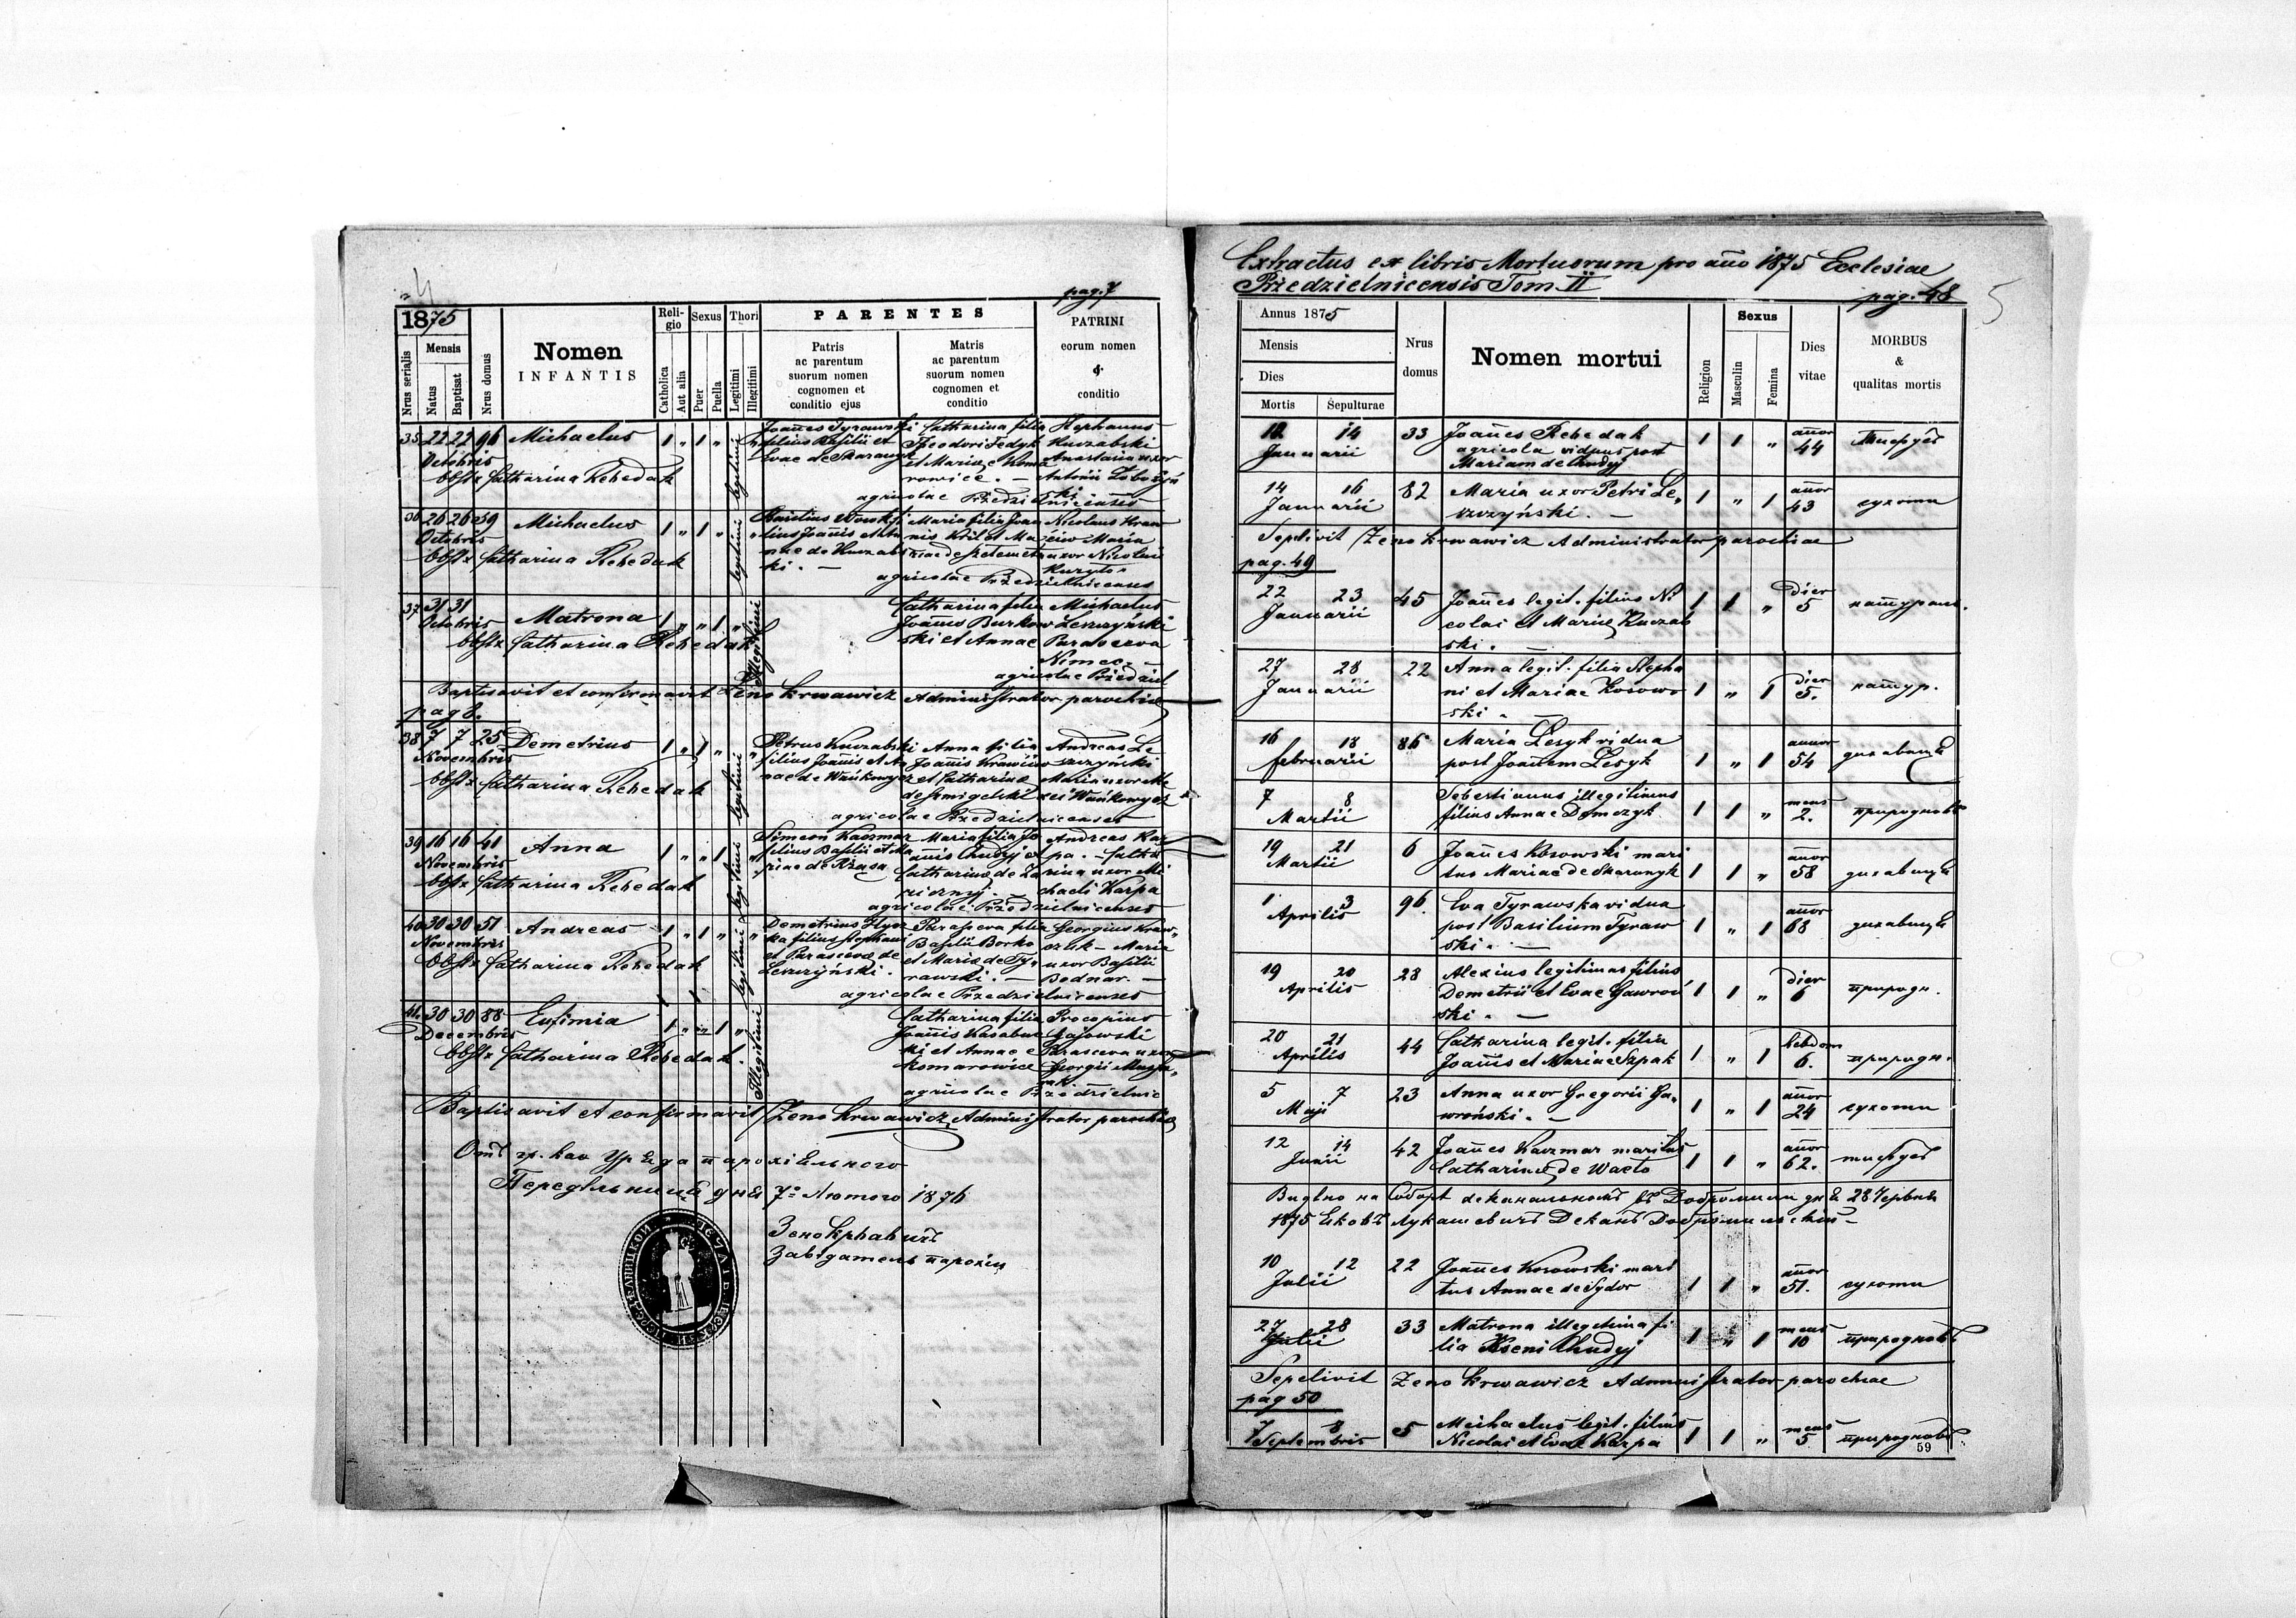 4
pag. 7
1875
Nrus serialis
Mensis
Natus
Baptisat
Nrus domus
Nomen
INFANTIS
Religio
Catholica
Aut alia
Sexus
Puer
Puella
Thori
Legitimi
Illegitimi
PARENTES
Patris
ac parentum
suorum nomen
cognomen et
conditio ejus
Matris
ac parentum
suorum nomen
cognomen et
conditio
PATRINI
eorum nomen
&
conditio
35 22 22 96 Michaelus 1 „ 1 „ legitimi „
Octobris
obst. Catharina Rebedak
Joañes Tyrawski
filius Basilii et
Evae de Skaranyk
Catharina filia
Theodori Fedyk
et Mariae Komarowice. —
Stephanus
Kuczabski
Anastasia uxor
Antonii
agricolae Przedzielnicenses
36 26 26 59 Michaelus 1 „ 1 „ legitimi „
Octobris
obst. Catharina Rebedak
Basilius
filius Joañis et Annae de Kuczabski. —
Maria filia Joannis Król et Mariae de
Nicolaus
Maria
uxor Nicolai
agricolae Przedzielnicenses
37 31 31 Matrona 1 „ „ 1 „ Illegitimi
Octobris
obst. Catharina Rebedak
Catharina filia
Joañis Burkowski et Annae
Michaelus
Leszczyński
Parasceva
Niemec. —
agricolae Przedziel
Baptisavit et confirmavit Zeno Krwawicz Administrator parochiae
pag 8.
38 7 7 25 Demetrius 1 „ 1 „ legitimi „
Novembris
obst. Catharina Rebedak
Petrus Kuczabski
filius Joañis et Annae de Wańkowycz
Anna filia
Joañis
et Catharinae
de Szmigelski
Andreas Leszczyński
Maria uxor Alexii Wańkowycz
agricolae Przedzielnicenses
39 16 16 41 Anna 1 „ „ 1 legitimi „
Novembris
obst. Catharina Rebedak
Simeon Kaczmar
filius Basilii et Mariae de Rżasa
Maria filia Joañis Chudyj et
Catharinae de
Andreas Karpa. — Catharina uxor Michaeli Karpa
agricolae Przedzielnicenses
40 30 30 51 Andreas 1 „ 1 „ legitimi „
Novembris
obst. Catharina Rebedak
Demetrius
filius Stephani
et Parascevae de
Leszczyński. —
Parasceva filia
Basilii Borko
et Mariae de Tyrawski. —
Georgius
Maria
uxor Basilii
Bodnar. —
agricolae Przedzielnicenses
41. 30 30 88 Eufimia 1 „ „ 1 „ Illegitimi
Decembris
obst. Catharina Rebedak.
Catharina filia
Joañis
et Annae
Komarowice
Procopius
Gajowski
Parasceva uxor
Georgii
agricolae Przedzielnic
Baptisavit et confirmavit Zeno Krwawicz Administrator parochiae
Отъ гр. кат. уряда парохіяльного
Передѣльница дня 7го Лютого 1876
Зено Крвавичъ
Завѣдатель парохіи
Extractus ex libris Mortuorum pro año 1875 Ecclesiae
Przedzielnicensis Tom. II
pag. 48
5
Annus 1875
Mensis
Dies
Mortis
Sepulturae
Nrus
domus
Nomen mortui
Religion
Sexus
Masculin
Femina
Dies
vitae
MORBUS
&
qualitas mortis
12 14 33 Joañes Rebedak 1 1 „ añor 44
Januarii agricola viduus post
Mariam de Chudyj
14 16 82 Maria uxor Petri Le- 1 „ 1 añor 43 сухоти
Januarii szczyński. —
Sepelivit Zeno Krwawicz Administrator parochiae
pag. 49
22 23 45 Joañes legit. filius Ni- 1 1 „ dier 5 натурал.
Januarii colai et Mariae Kuczab
ski. —
27 28 22 Anna legit. filia Stepha 1 „ 1 dier 5. натур.
Januarii ni et Mariae Kosowo
ski. —
16 18 86 Maria Lesyk vidua 1 „ 1 annor 54 дихавиця
februarii post Joañem Lesyk
7 8 Sebastianus illegitimus 1 1 „ mens 2. природновъ
Martii filius Annae Domczyk
19 21 6 Joañes Kosowski mari 1 1 „ añor 58 дихавиця
Martii tus Mariae de Skaranyk
1 3 96. Eva Tyrawska vidua 1 „ 1 añor 68 дихавиця
Aprilis post Basilium Tyraw
ski. —
19 20 28 Alexius legitimus filius 1 1 „ dier 6 природн.
Aprilis Demetrii et Evae Gawroń
ski. —
20 21 44 Catharina legit. filia 1 „ 1 hebdom 6. природн.
Aprilis Joañis et Mariae Szpak
5 7 23 Anna uxor Gregorii Ga- 1 „ 1 añor 24 сухоти
Maji wroński. —
12 14 42 Joañes Kaczmar maritus 1 1 „ añor 62. тифусъ
Junii Catharinae de Waclo
Видѣно на Соборѣ деканальномъ въ Добромили дня 28 Червня
1875 Яковъ Лукашевичъ Деканъ Добромильскій —
10 12 22 Joañes Kosowski mari 1 1 „ añor 51. сухоти
Julii tus Annae de Sydor
27 28 33 Matrona illegitima fi 1 „ 1 mens 10 природновъ
Julii lia Kseni Chudyj
Sepelivit Zeno Krwawicz Administrator parochiae
pag 50
7 8 5 Michaelus legit. filius 1 1 „ mens 5 природновъ
Septembris Nicolai et Evae Karpa
59